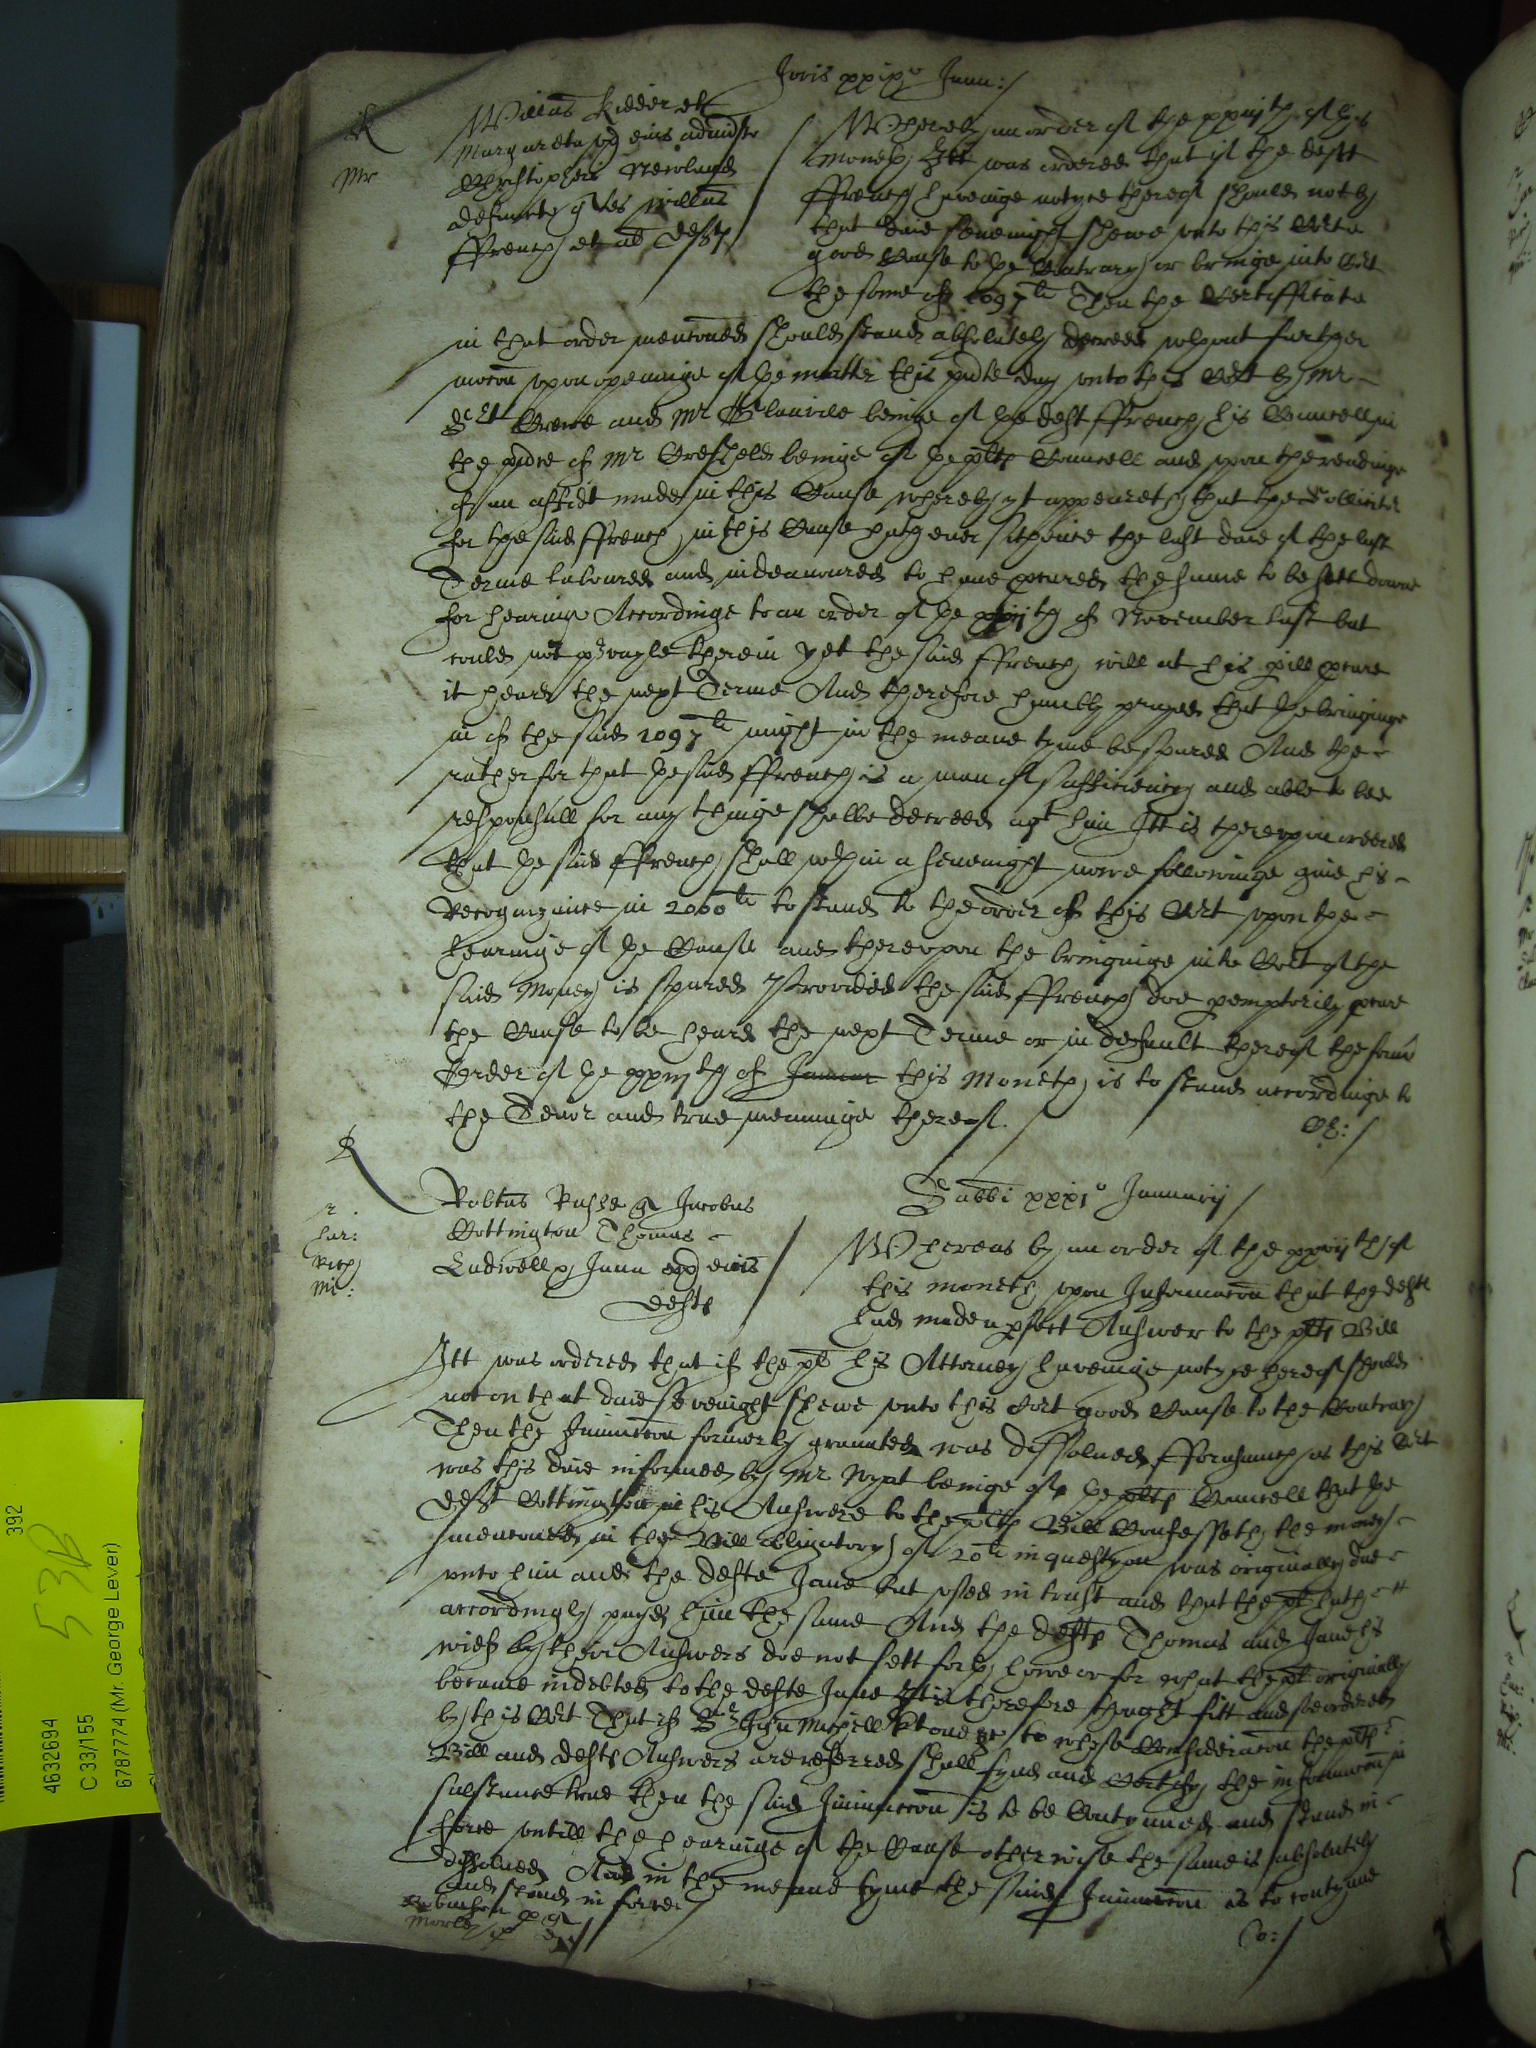 Jovis xxix° Janu:/
R
Mr
Willus Kidder et
Margareta vx eius administr
Christopheri Newland
defuncti quer Willus
ffrench et al deftes
Whereby an order of the xxiijth of this
moneth Itt was ordered that if the deft
ffrench haveinge notyce thereof should not by
that daie sevenight shewe unto this Cort a
good Cause to the Contrary or bringe into Cort
the some of 1097li Then the Certifficate
in that order menconed should stand absolutely decreed wthout further
mocon upon openinge of the matter this pnte day unto this Cort by Mr
Serit Crewe and Mr Glanvile beinge of the deft ffrench his Councell in
the pnce of Mr Cresheld beinge of the plts Councell and upon the readinge
of an affidt made in this Cause whereby yt appeareth that the Sollicitor
for the said ffrench in this Cause hath ever sithence the last daie of the last
Terme laboured and indeavoured to have pcured the same to be sett downe
for hearinge Accordinge to an order of the th of November last but
could not pvayle therein yet the said ffrench will at his pill pcure
it heard the next Terme And therefore humbly prayed that the bringinge
in of the said 1097li might in the meane tyme be spared And the
rather for that the said ffrench is a man of sufficiency and able to bee
responsall for any thinge shalbe decreed agt him Itt is thereupon ordered
that the said ffrench shall wthin a sevenight nowe followinge give his
Recognizance in 2000li to stand to the order of this Cort upon the
hearinge of the Cause and thereupon the bringinge into Cort of the
said Money is spared Provided the said ffrench doe pemptorily pcure
the Cause to be heard the next Terme or in default thereof the same
Order of the xxiijth of Januar this Moneth is to stand accordinge to
the Tenor and true meaninge thereof./
R
Sabbi xxxi° Januarij
har:
Rich
Mr:
Robtus quer Jacobus
Cottington Thomas
Ludwell Jana vx eius
deftes
Whereas by an order of the xxvijth of
this moneth upon Informacon that the defts
had made a pfect Answer to the plts Bill
Itt was ordered that if the plt his Attorney haveinge notyce thereof should
not on that daie sevenight shewe unto this Cort good Cause to the Contrary
Then the Iniunccon formerly graunted was dissolved fforasmuch as this Cort
was this daie informed by Mr Wyat beinge of the plts Councell that the
deft Cottington in his Answere to the plts Bill Confesseth the money
menconed in the Bill obligatory of 20li in questyon was originally due
unto him and the defte Jane but used in trust and that the plt hath
accordingly payed him the same And the defts Thomas and Jane his
wief by their Answers doe not sett forth howe or for what the plt originally
became indebted to the defte Jane It is therefore thought fitt and soe ordered
by this Cort That if Sr John Michell Kt one &c to whose Consideracon the plts
Bill and defts Answers are referred shall fynd and Certify the informacon in
substance true then the said Iniunccon is to be Contynued and stand in
force untill the hearinge of the Cause otherwise the same is absolutely
dissolved And in the meane tyme the said Iniunccon is to contynue
and stand in force
Co:/
392
53b
4632694
C 33/155
6787774 (Mr. George Lever)